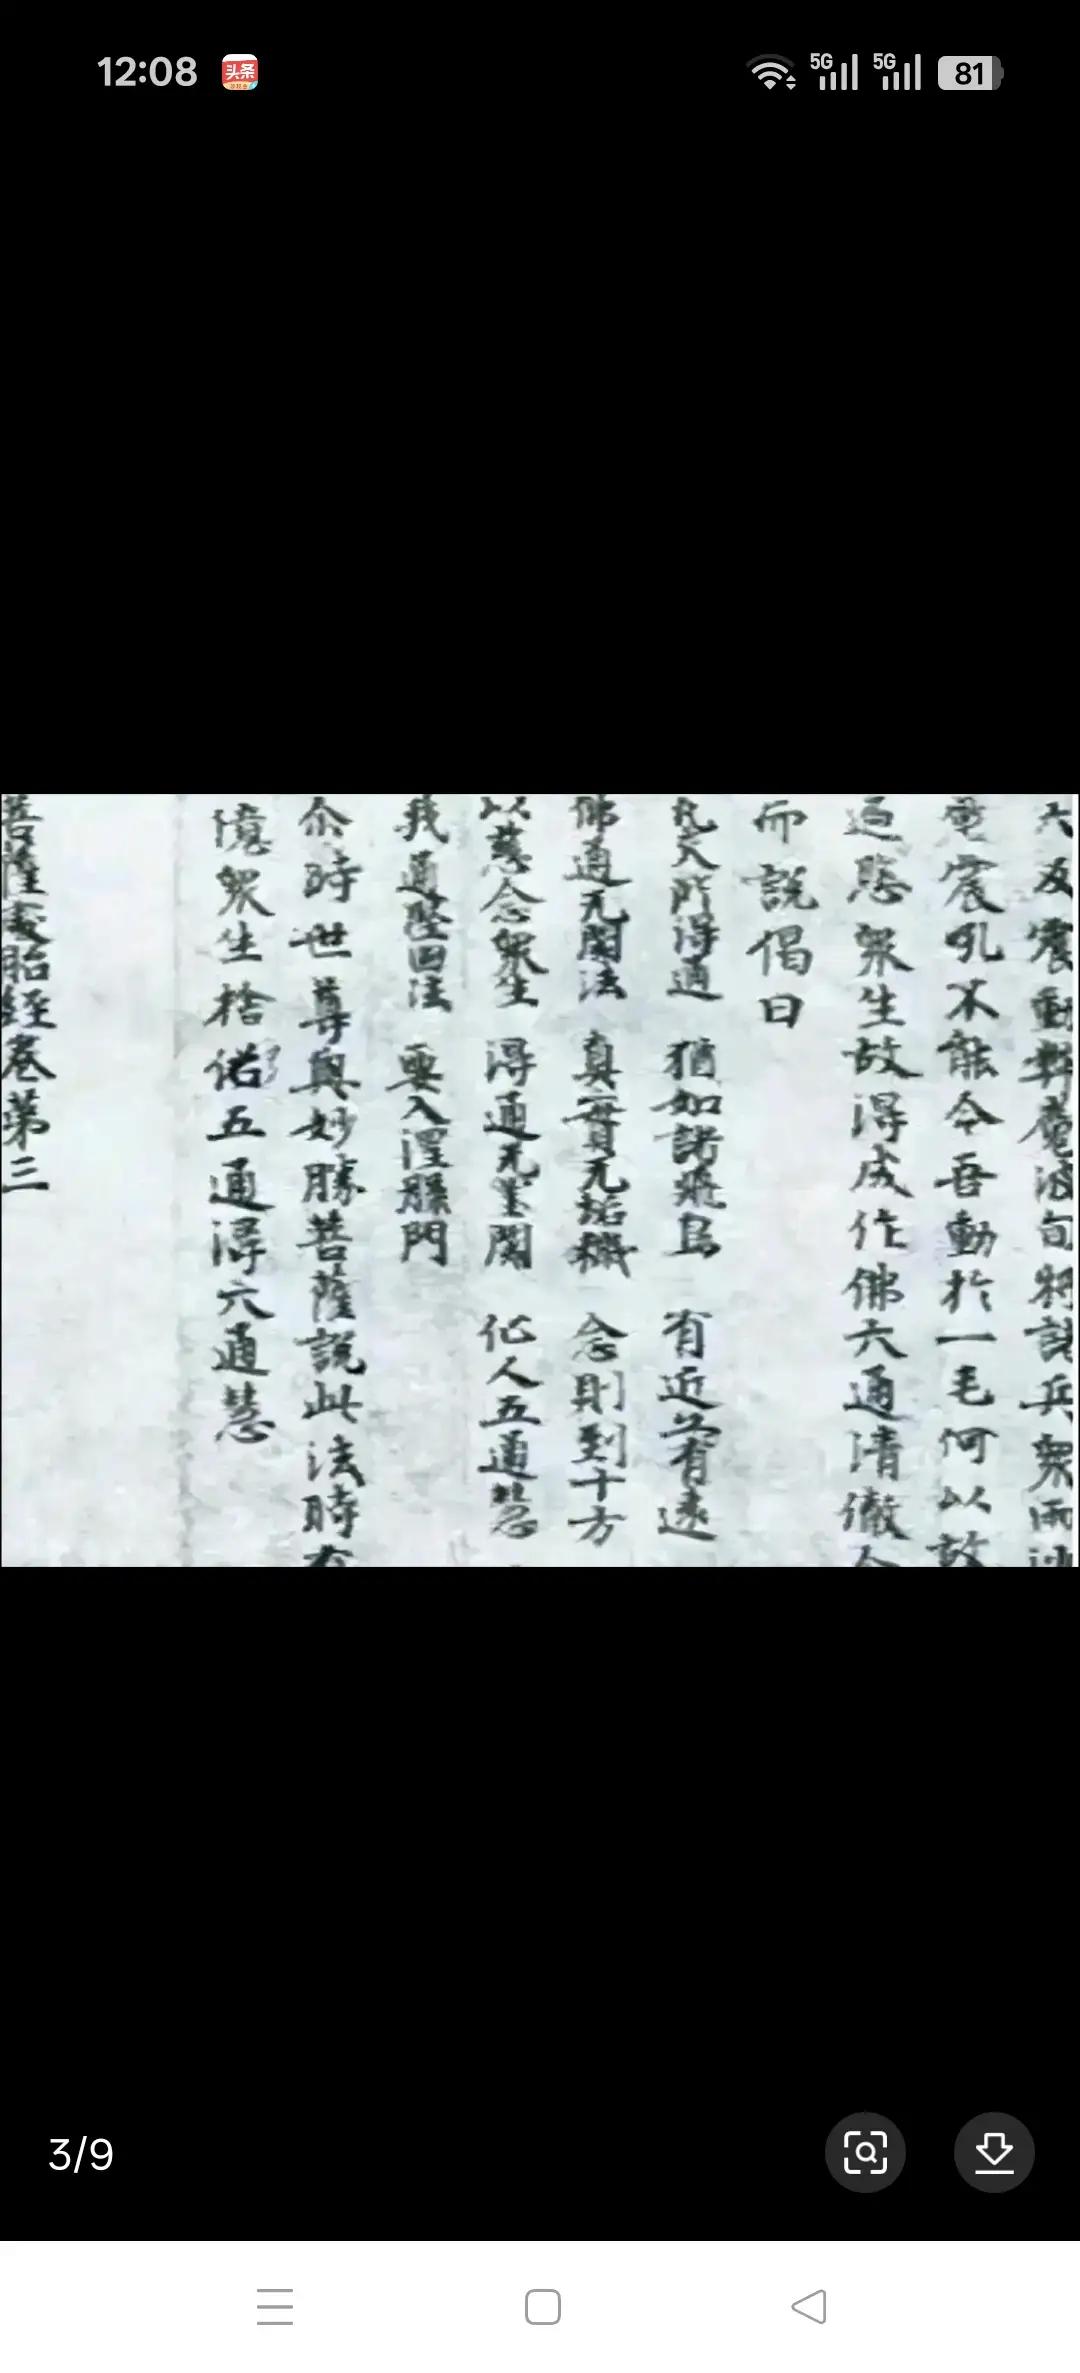 12:08
头条
5G
5G
81
六反震動弊魔波旬將諸兵衆雨沙
電震吼不能令吾動於一毛何以故
過愍衆生故得成作佛六通清徹今
而說偈曰
凡夫所得通 猶如諸飛鳥 有近必有遠
佛通无閡法 真無无垢穢 念則到十方
以慈念衆生 得通无罣閡 仙人五通慧
我通堅固法 要入涅槃門
尒時世尊與妙勝菩薩說此法時有
億衆生捨俗五通得六通慧
菩薩處胎經卷第三
3/9